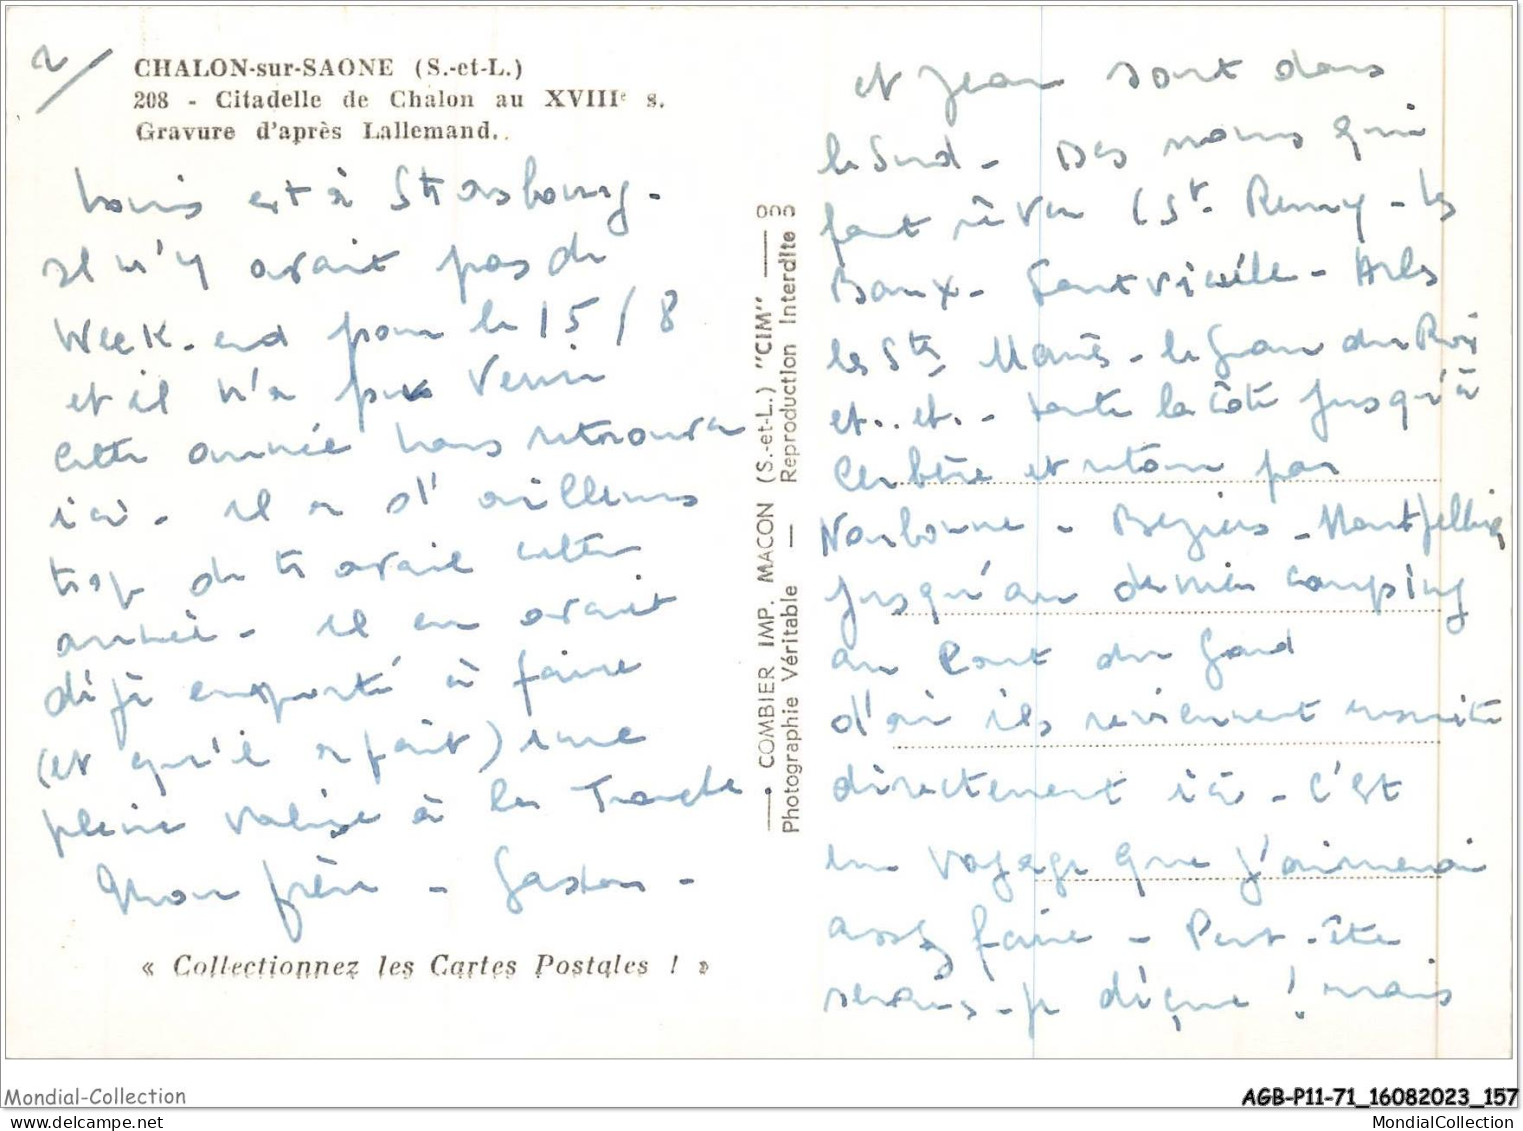 2/
CHALON-sur-SAONE (S.-et-L.)
208 - Citadelle de Chalon au XVIIIe s.
Gravure d'après Lallemand.
Louis est à Strasbourg -
Il n'y avait pas de
Week-end pour le 15/8
et il n'a pu venir
Cette année nous retrouver
ici - il a d'ailleurs
trop de travail cette
année - il en avait
déjà emporté à faire
(et qu'il a fait) une
pleine valise à la
Mon frère - Gaston -
« Collectionnez les Cartes Postales ! »
COMBIER IMP. MACON (S.-et-L.) "CIM"
Photographie Véritable — Reproduction Interdite
et Jean sont dans
le Sud - Des noms qui
font rêver (St. Remy - les
Baux - Fontvieille - Arles
les Stes Maries - le Grau du Roi
et.. et.. toute la côte jusqu'à
Cerbère et retour par
Narbonne - Beziers - Montpellier
jusqu'au dernier camping
au Pont du Gard
d'où ils reviennent ensuite
directement ici - C'est
un voyage que j'aimerai
assez faire - Peut-être
serais-je déçue ! mais
Mondial-Collection
AGB-P11-71_16082023_157
MondialCollection